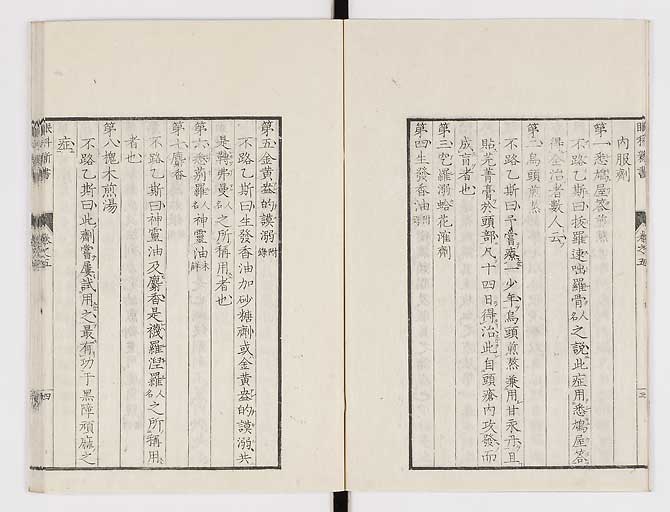 眼科新書
卷之五
三
内服劑
第一悉鳩屋荅煎
不路乙斯曰拔羅速咄羅骨人名之說此症用悉鳩屋荅
得全治者數人云
第二烏頭煎熬
不路乙斯曰予嘗療一少年烏頭煎熬兼用甘汞丹且
貼芫菁膏於頭部凡十四日得治此自頭瘡内攻發而
成盲者也
第三
羅溺蛤花灌劑
第四生發香油附錄
第五金黄
的謨溺附錄
不路乙斯曰生發香油加砂糖劑或金黄
的謨溺共
是鞠弗曼人名之所稱用者也
第六悉蒴羅人名神靈油未詳
第七麝香
不路乙斯曰神靈油及麝香是襪羅涅羅人名之所稱用
者也
第八
木煎湯
不路乙斯曰此劑嘗屢試用之最有功于黑障頑麻之
症
眼科新書
卷之五
四